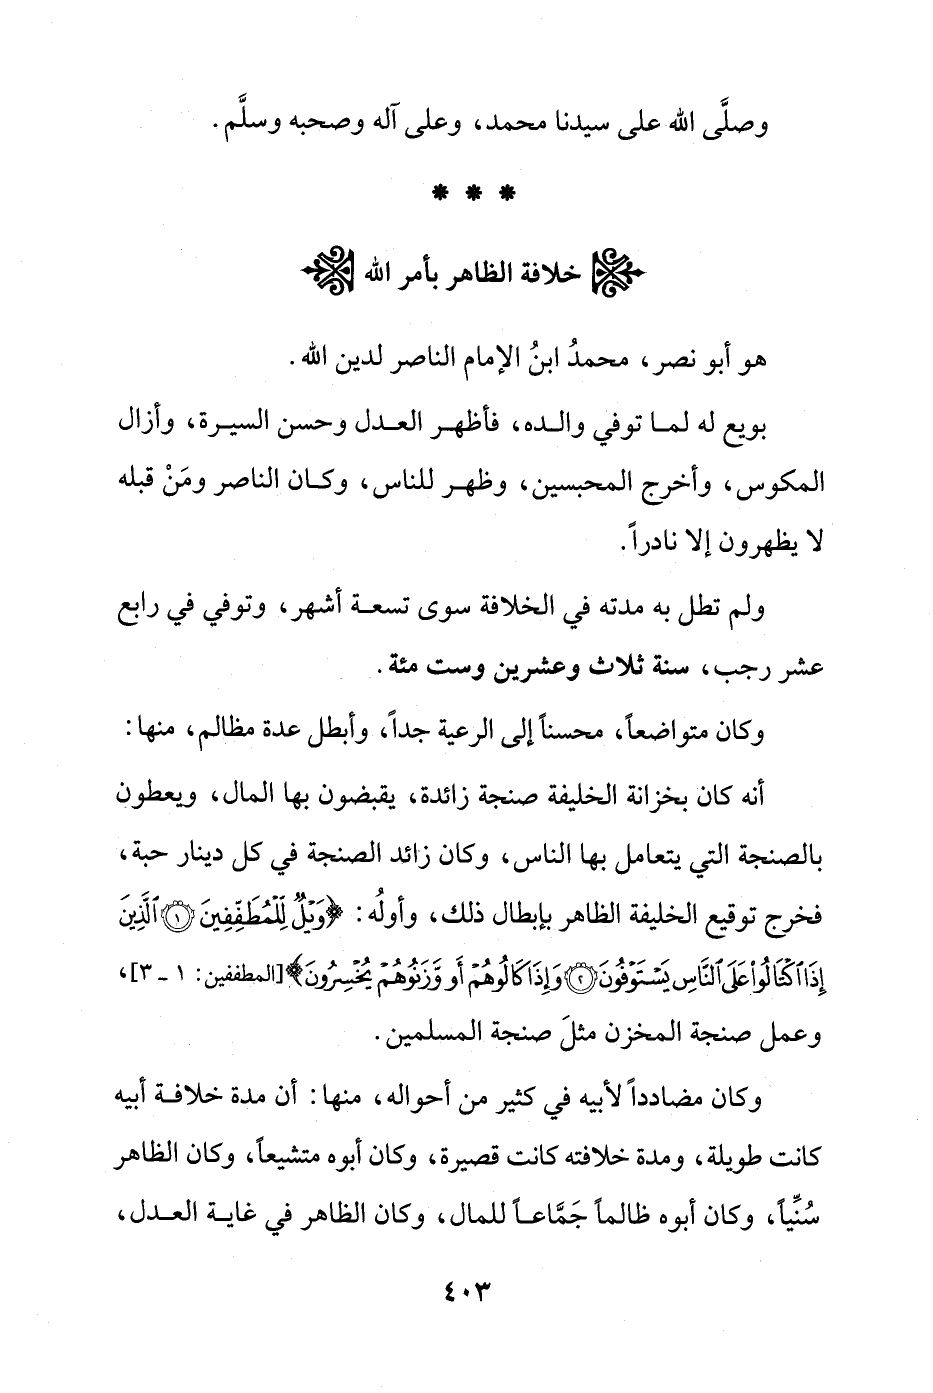 وصلَّى الله على سيدنا محمد، وعلى آله وصحبه وسلَّم.
* * *
خلافة الظاهر بأمر الله
هو أبو نصر، محمدُ ابنُ الإمام الناصر لدين الله.
بويع له لما توفي والده، فأظهر العدل وحسن السيرة، وأزال
المكوس، وأخرج المحبسين، وظهر للناس، وكان الناصر ومَنْ قبله
لا يظهرون إلا نادراً.
ولم تطل به مدته في الخلافة سوى تسعة أشهر، وتوفي في رابع
عشر رجب، سنة ثلاث وعشرين وست مئة.
وكان متواضعاً، محسناً إلى الرعية جداً، وأبطل عدة مظالم، منها:
أنه كان بخزانة الخليفة صنجة زائدة، يقبضون بها المال، ويعطون
بالصنجة التي يتعامل بها الناس، وكان زائد الصنجة في كل دينار حبة،
فخرج توقيع الخليفة الظاهر بإبطال ذلك، وأولُه: ﴿وَيْلٌ لِّلْمُطَفِّفِينَ ١ ٱلَّذِينَ
إِذَا ٱكْتَالُوا۟ عَلَى ٱلنَّاسِ يَسْتَوْفُونَ ٢ وَإِذَا كَالُوهُمْ أَو وَّزَنُوهُمْ يُخْسِرُونَ﴾ [المطففين: ١ - ٣]،
وعمل صنجة المخزن مثلَ صنجة المسلمين.
وكان مضادداً لأبيه في كثير من أحواله، منها: أن مدة خلافة أبيه
كانت طويلة، ومدة خلافته كانت قصيرة، وكان أبوه متشيعاً، وكان الظاهر
سُنِّياً، وكان أبوه ظالماً جَمَّاعاً للمال، وكان الظاهر في غاية العدل،
٤٠٣